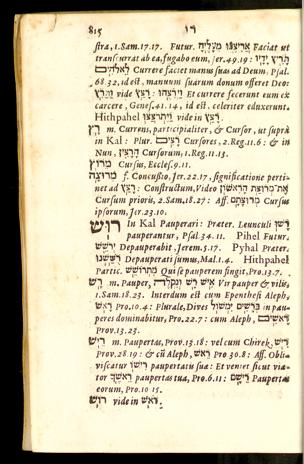 815 רו
stra, 1.Sam.17.17. Futur. Faciat ut
transcurrat ab ea, fugabo eum, Jer.49.19:
Currere faciet manus suas ad Deum, Psal.
68.32, id est, manuum suarum donum offeret Deo:
vide רצץ. Et currere fecerunt eum ex
carcere, Genes.41.14, id est, celeriter eduxerunt.
Hithpahel vide in רצץ.
רץ m. Currens, participialiter, & Cursor, ut suprà
in Kal: Plur. רצים Cursores, 2.Reg.11.6: & in
Nun, רצין Cursorum, 1.Reg.11.13.
מרוץ Cursus, Eccles.9.11.
מרוצה f. Concussio, Jer.22.17, significatione perti-
net ad רצץ: Constructum, Video
Cursum prioris, 2.Sam.18.27: Aff. מרוצתם Cursus
ipsorum, Jer.23.10.
רוש In Kal Pauperari: Præter. Leunculi רשו
pauperantur, Psal.34.11. Pihel Futur.
ירשש Depauperabit, Jerem.5.17. Pyhal Præter.
רששנו Depauperati sumus, Mal.1.4. Hithpahel
Partic. מתרושש Qui se pauperem fingit, Pro.13.7.
רש m. Pauper, איש רש ונקלה Vir pauper & vilis,
1.Sam.18.23. Interdum est cum Epenthesi Aleph,
ראש Pro.10.4: Plurale, Dives in pau-
peres dominabitur, Pro.22.7: cum Aleph,
Prov.13.23.
ריש m. Paupertas, Prov.13.18: vel cum Chirek, ריש
Prov.28 19: & cũ Aleph, ראש Pro 30.8: Aff. Obli-
viscatur רישו paupertatis suæ: Et veniet sicut via-
tor paupertas tua, Pro.6.11: רישם Paupertas
eorum, Pro.10 15.
רוש vide in ראש.